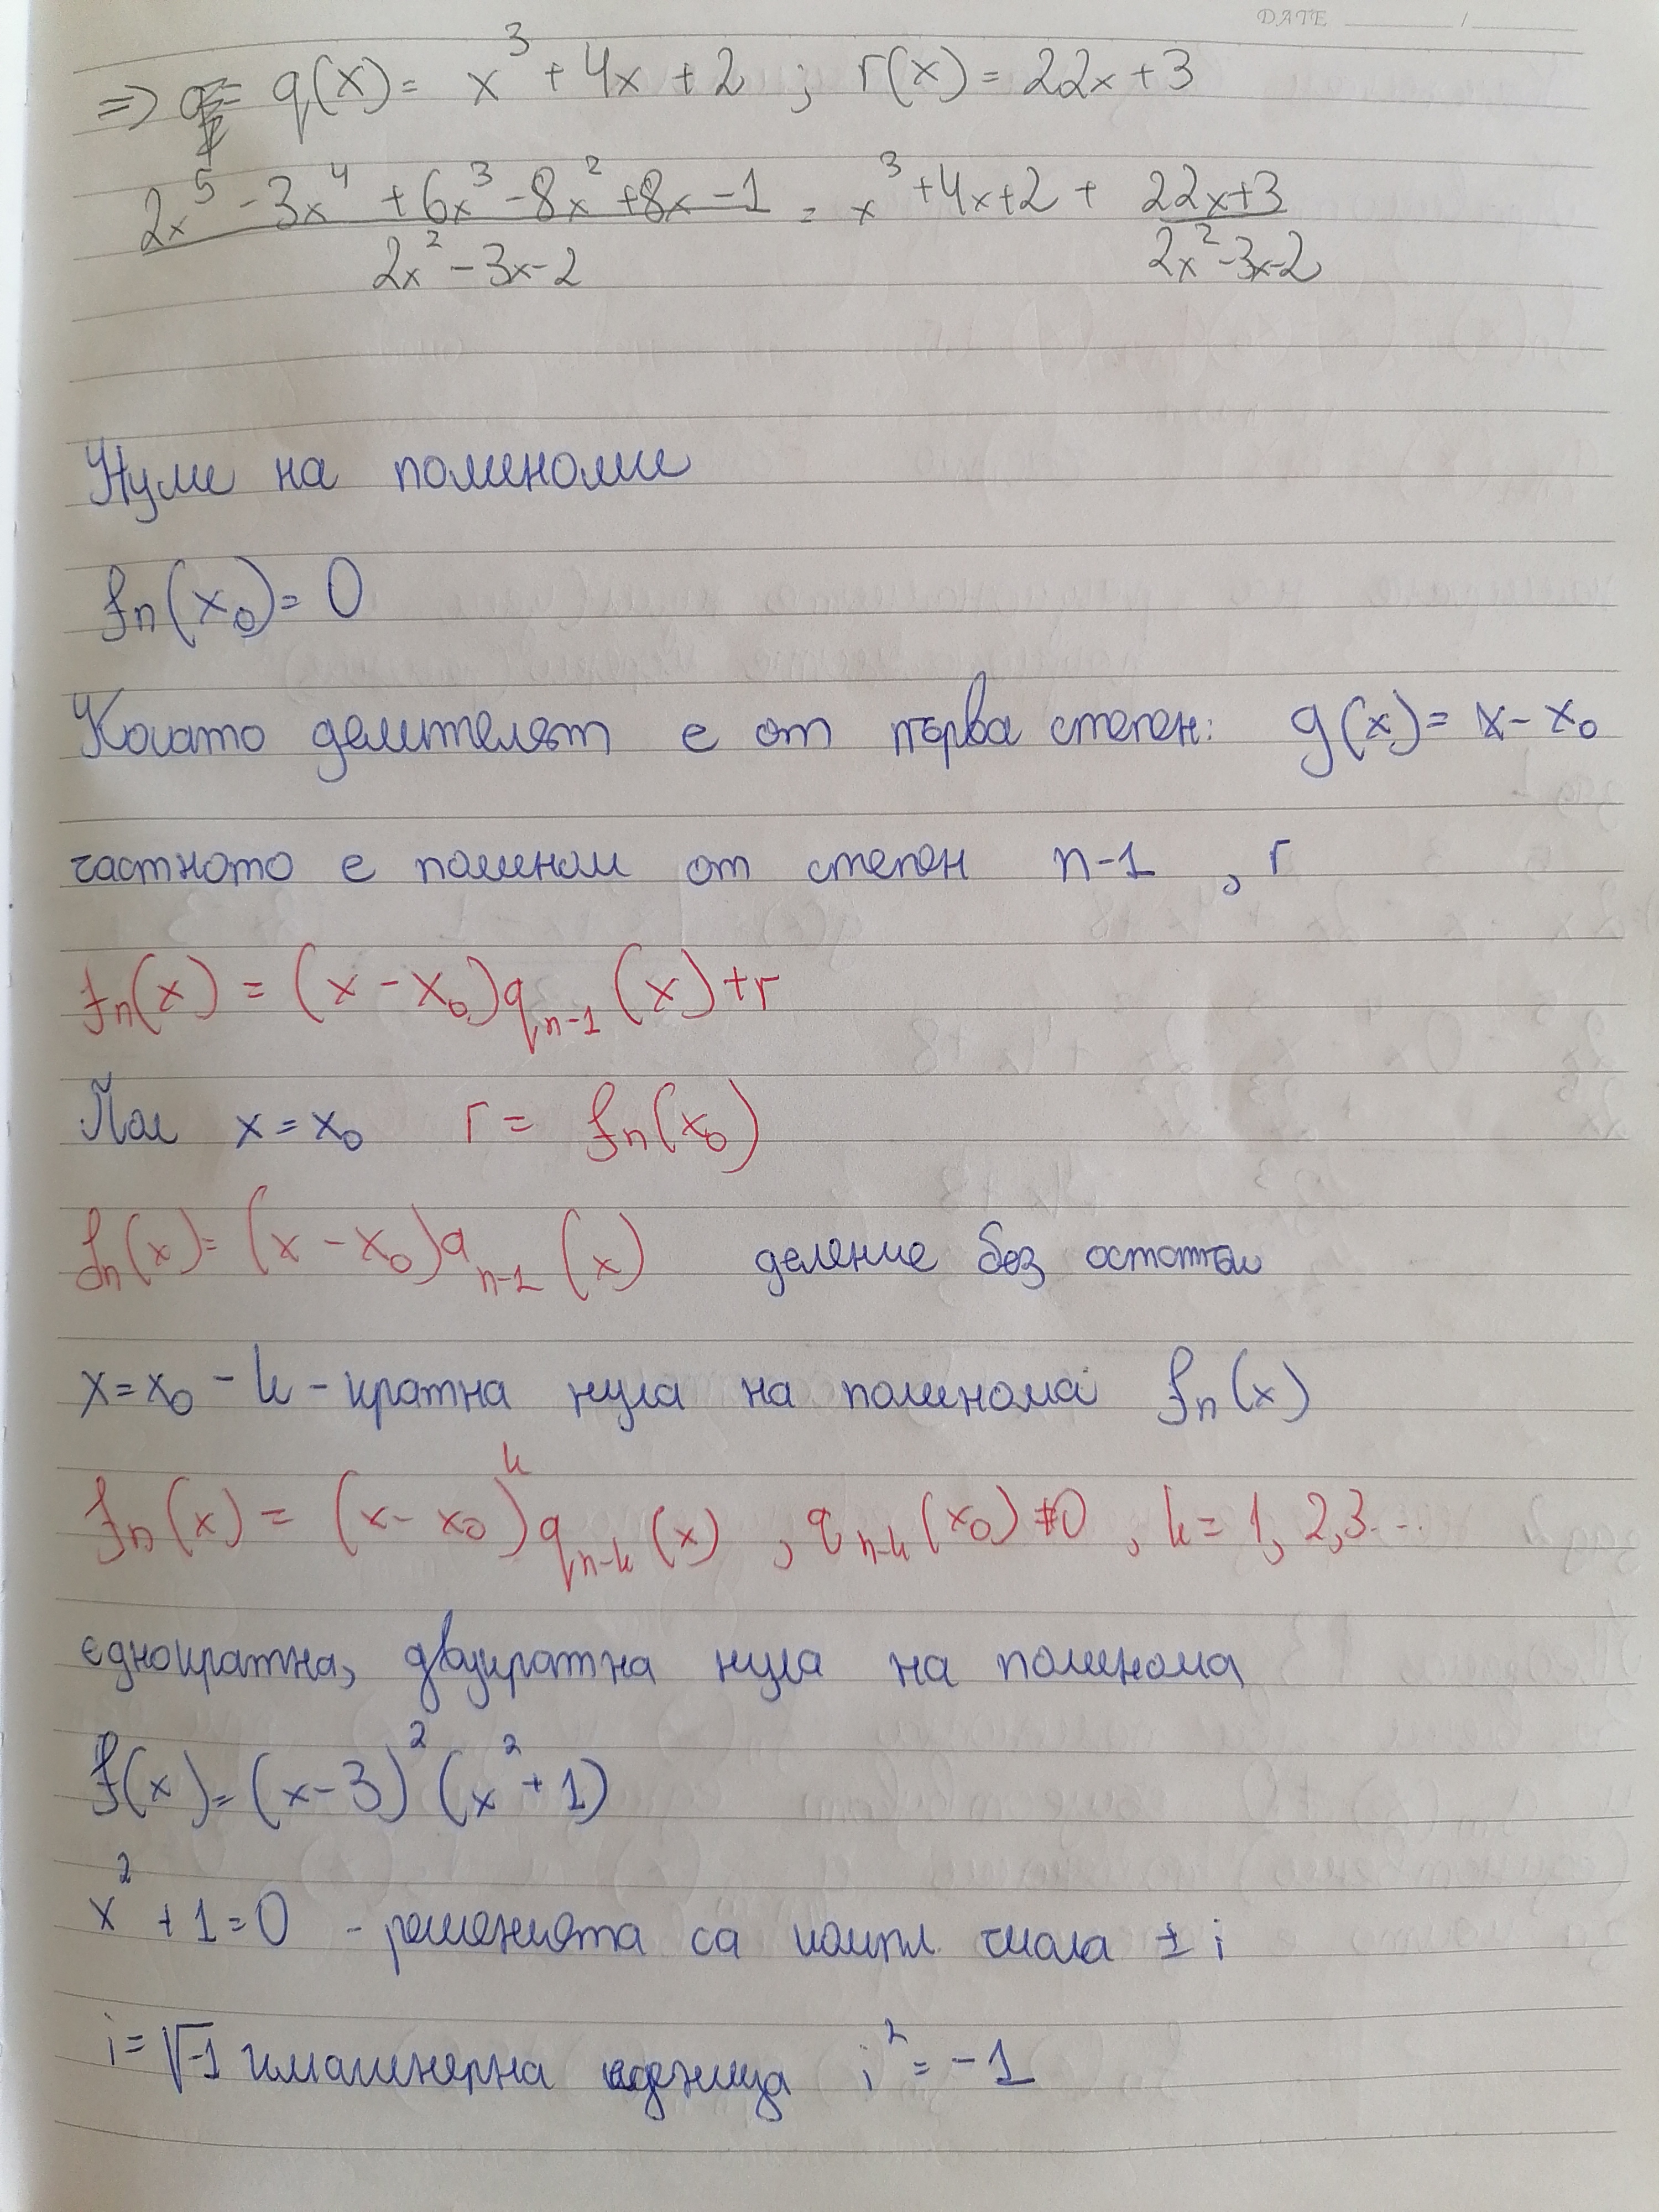 DATE ________ / ________
=> q(x) = x³ + 4x + 2 ; r(x) = 22x + 3
2x⁵ - 3x⁴ + 6x³ - 8x² + 8x - 1 = x³ + 4x + 2 + 22x+3
2x² - 3x - 2 2x² - 3x - 2
Нули на полиноми
fₙ(x₀) = 0
Когато делителят е от първа степен: g(x) = x - x₀
частното е полином от степен n-1 , r
fₙ(x) = (x - x₀)qₙ₋₁(x) + r
При x = x₀ r = fₙ(x₀)
fₙ(x) = (x - x₀)qₙ₋₁(x) деление без остатък
x = x₀ - k - кратна нула на полинома fₙ(x)
fₙ(x) = (x - x₀)ᵏ qₙ₋ₖ(x) , qₙ₋ₖ(x₀) ≠ 0 , k = 1, 2, 3...
еднократна, двукратна нула на полинома
f(x) = (x - 3)² (x² + 1)
x² + 1 = 0 - решенията са компл. числа ± i
i = √-1 имагинерна единица i² = -1